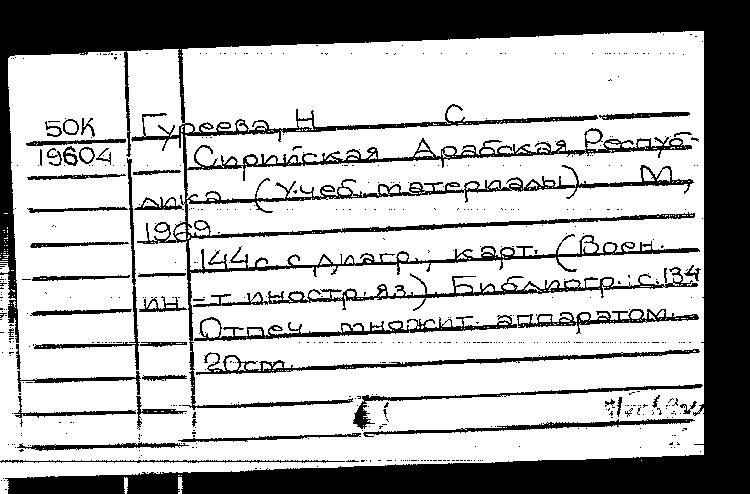 50К Гуреева, Н С
19604 Сирийская Арабская Респуб-
лика (Учеб. материалы). М.,
1969.
144с с диагр.; карт. (Воен.
ин-т иностр. яз.). Библиогр.: с.134
Отпеч. множит. аппаратом.
20см.